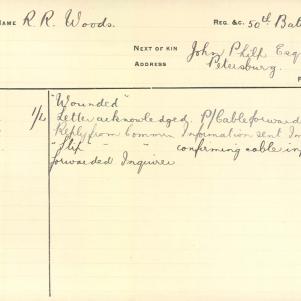 NAME R. R. Woods. REG. &C. 50th Bat
NEXT OF KIN John Philp Esq
ADDRESS Petersburg.
"Wounded"
1/2 Letter acknowledged, P/Cable forwarde
Reply from Commn Information sent In
"Slip" " " confirming cable in
forwarded Inquirer